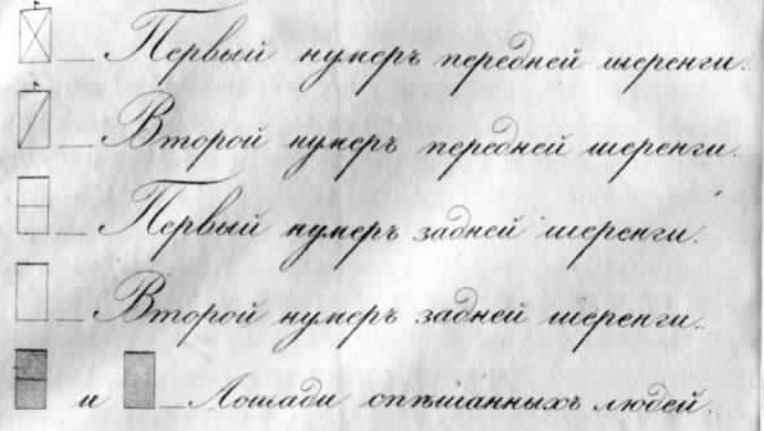 Первый нумеръ передней шеренги.
Второй нумеръ передней шеренги.
Первый нумеръ задней шеренги.
Второй нумеръ задней шеренги.
и Лошади спѣшанныхъ людей.